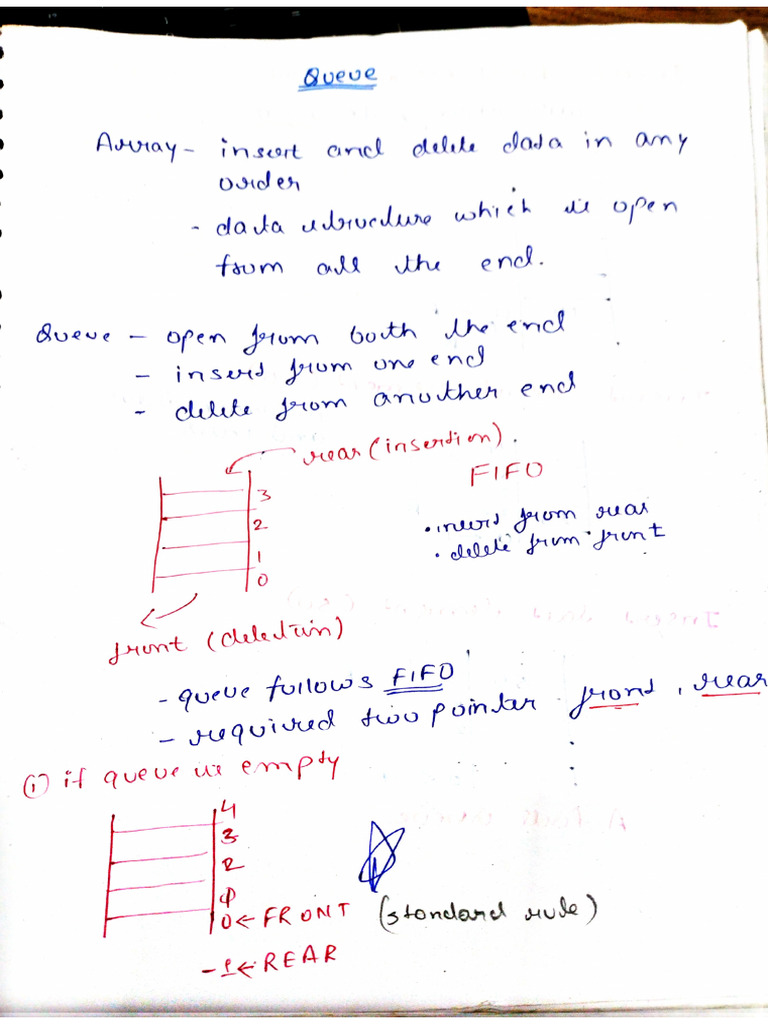 Queue
Array - insert and delete data in any
order
- data structure which is open
from all the end.
Queue - open from both the end
- insert from one end
- delete from another end
rear (insertion).
FIFO
3
2
1
0
• insert from rear
• delete from front
front (deletion)
- queue follows FIFO
- required two pointer front, rear
(i) if queue is empty
4
3
2
1
0 ← FRONT (standard rule)
-1 ← REAR